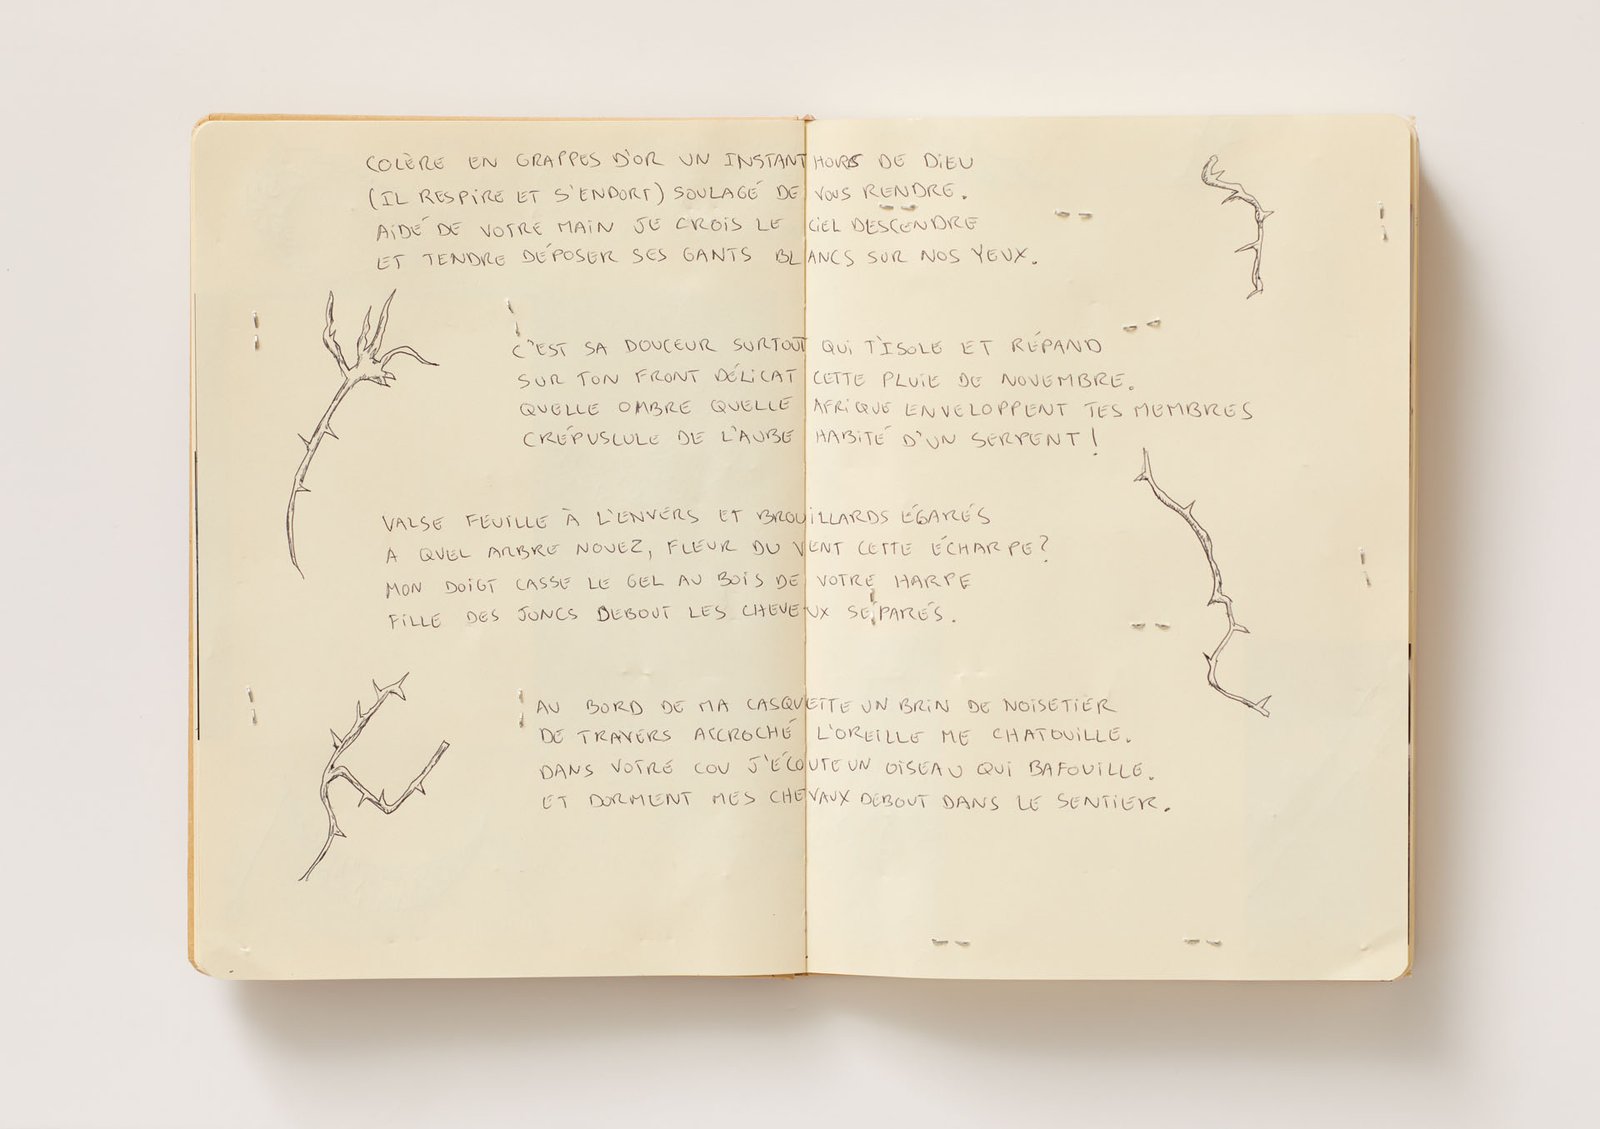 COLÈRE EN GRAPPES D'OR UN INSTANT HORS DE DIEU
(IL RESPIRE ET S'ENDORT) SOULAGÉ DE VOUS RENDRE.
AIDÉ DE VOTRE MAIN JE CROIS LE CIEL DESCENDRE
ET TENDRE DÉPOSER SES GANTS BLANCS SUR NOS YEUX.
C'EST SA DOUCEUR SURTOUT QUI T'ISOLE ET RÉPAND
SUR TON FRONT DÉLICAT CETTE PLUIE DE NOVEMBRE.
QUELLE OMBRE QUELLE AFRIQUE ENVELOPPENT TES MEMBRES
CRÉPUSCULE DE L'AUBE HABITÉ D'UN SERPENT !
VALSE FEUILLE À L'ENVERS ET BROUILLARDS ÉGARÉS
A QUEL ARBRE NOUEZ, FLEUR DU VENT CETTE ÉCHARPE?
MON DOIGT CASSE LE GEL AU BOIS DE VOTRE HARPE
FILLE DES JONCS DEBOUT LES CHEVEUX SÉPARÉS.
AU BORD DE MA CASQUETTE UN BRIN DE NOISETIER
DE TRAVERS ACCROCHÉ L'OREILLE ME CHATOUILLE.
DANS VOTRE COU J'ÉCOUTE UN OISEAU QUI BAFOUILLE.
ET DORMENT MES CHEVAUX DEBOUT DANS LE SENTIER.